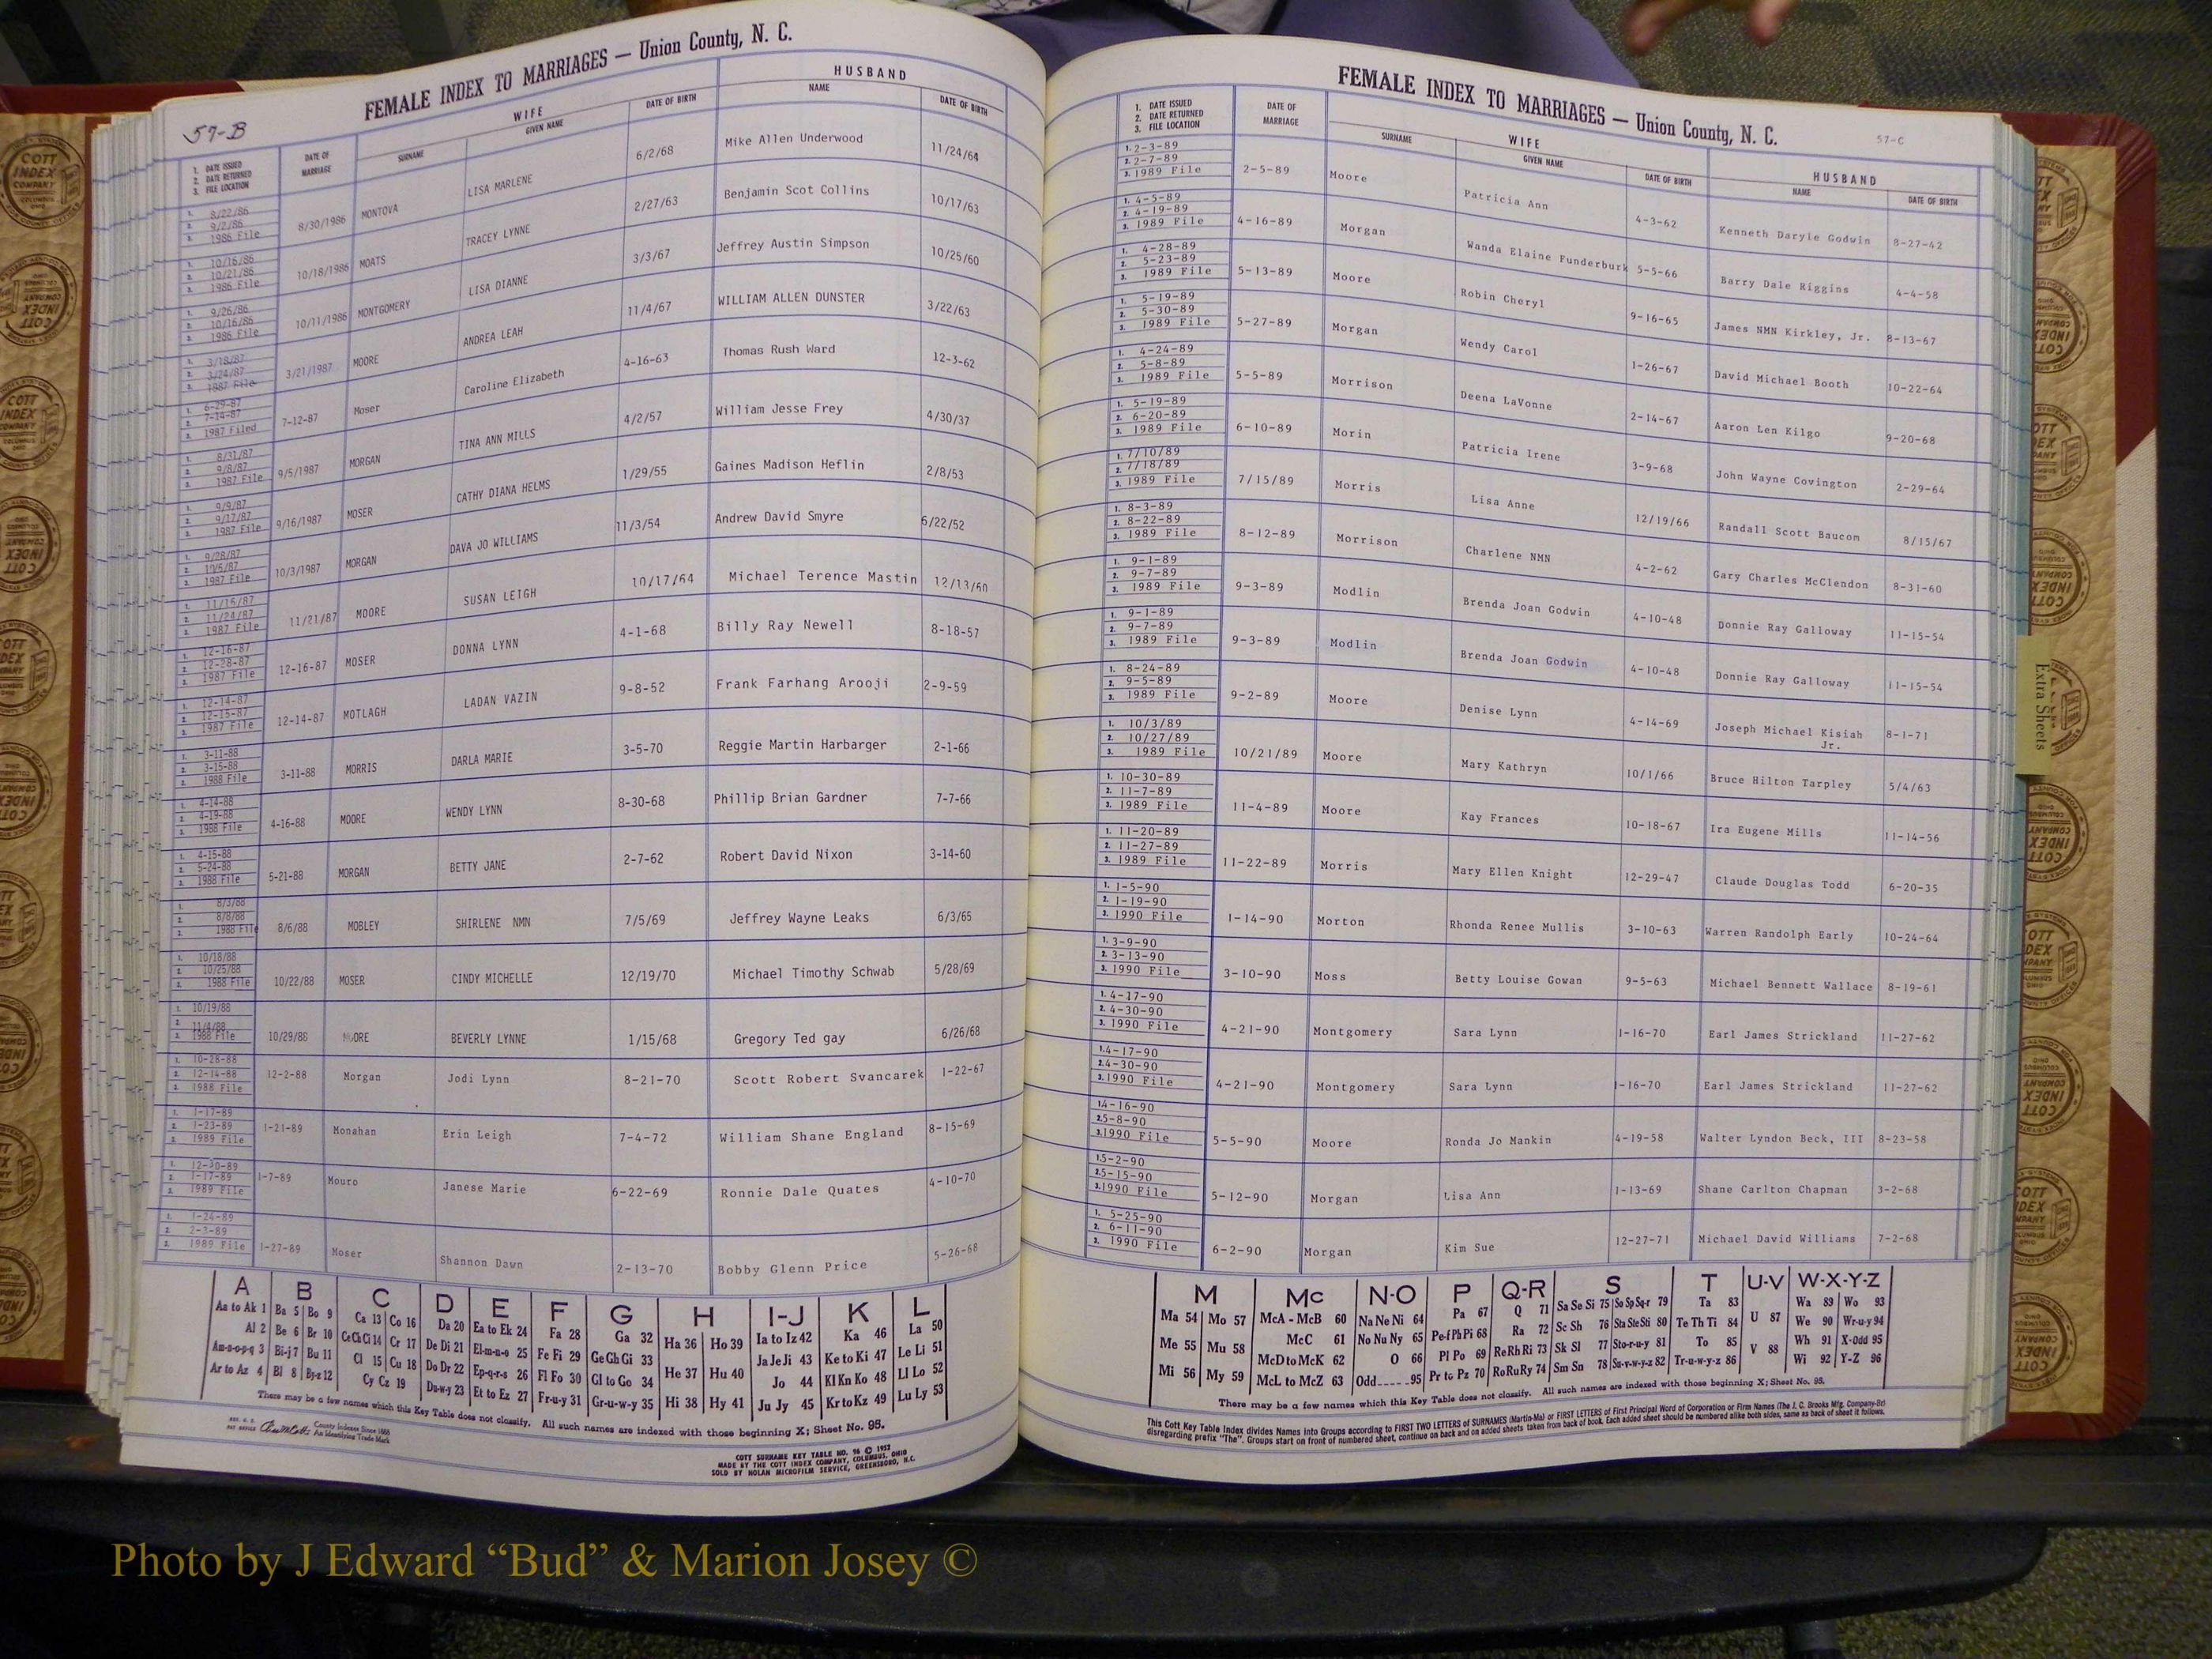 FEMALE INDEX TO MARRIAGES — Union County, N. C.
57-B
1. DATE ISSUED
2. DATE RETURNED
3. FILE LOCATION
DATE OF MARRIAGE
WIFE
SURNAME GIVEN NAME DATE OF BIRTH
HUSBAND
NAME DATE OF BIRTH
1. 8/22/86 2. 9/2/86 3. 1986 File 8/30/1986 MONTOVA LISA MARLENE 6/2/68 Mike Allen Underwood 11/24/64
1. 10/16/86 2. 10/21/86 3. 1986 File 10/18/1986 MOATS TRACEY LYNNE 2/27/63 Benjamin Scot Collins 10/17/63
1. 9/26/86 2. 10/16/86 3. 1986 File 10/11/1986 MONTGOMERY LISA DIANNE 3/3/67 Jeffrey Austin Simpson 10/25/60
1. 3/18/87 2. 3/24/87 3. 1987 File 3/21/1987 MOORE ANDREA LEAH 11/4/67 WILLIAM ALLEN DUNSTER 3/22/63
1. 6-29-87 2. 7-14-87 3. 1987 Filed 7-12-87 Moser Caroline Elizabeth 4-16-63 Thomas Rush Ward 12-3-62
1. 8/31/87 2. 9/8/87 3. 1987 File 9/5/1987 MORGAN TINA ANN MILLS 4/2/57 William Jesse Frey 4/30/37
1. 9/9/87 2. 9/17/87 3. 1987 File 9/16/1987 MOSER CATHY DIANA HELMS 1/29/55 Gaines Madison Heflin 2/8/53
1. 9/28/87 2. 10/5/87 3. 1987 File 10/3/1987 MORGAN DAVA JO WILLIAMS 11/3/54 Andrew David Smyre 6/22/52
1. 11/16/87 2. 11/24/87 3. 1987 File 11/21/87 MOORE SUSAN LEIGH 10/17/64 Michael Terence Mastin 12/13/60
1. 12-16-87 2. 12-28-87 3. 1987 File 12-16-87 MOSER DONNA LYNN 4-1-68 Billy Ray Newell 8-18-57
1. 12-14-87 2. 12-15-87 3. 1987 File 12-14-87 MOTLAGH LADAN VAZIN 9-8-52 Frank Farhang Arooji 2-9-59
1. 3-11-88 2. 3-15-88 3. 1988 File 3-11-88 MORRIS DARLA MARIE 3-5-70 Reggie Martin Harbarger 2-1-66
1. 4-14-88 2. 4-19-88 3. 1988 File 4-16-88 MOORE WENDY LYNN 8-30-68 Phillip Brian Gardner 7-7-66
1. 4-15-88 2. 5-24-88 3. 1988 File 5-21-88 MORGAN BETTY JANE 2-7-62 Robert David Nixon 3-14-60
8/3/88 8/8/88 1988 File 8/6/88 MOBLEY SHIRLENE NMN 7/5/69 Jeffrey Wayne Leaks 6/3/65
1. 10/18/88 2. 10/25/88 3. 1988 File 10/22/88 MOSER CINDY MICHELLE 12/19/70 Michael Timothy Schwab 5/28/69
1. 10/19/88 2. 11/4/88 3. 1988 File 10/29/88 MOORE BEVERLY LYNNE 1/15/68 Gregory Ted gay 6/26/68
1. 10-28-88 2. 12-14-88 3. 1988 File 12-2-88 Morgan Jodi Lynn 8-21-70 Scott Robert Svancarek 1-22-67
1. 1-17-89 2. 1-23-89 3. 1989 File 1-21-89 Monahan Erin Leigh 7-4-72 William Shane England 8-15-69
1. 12-30-89 2. 1-17-89 3. 1989 File 1-7-89 Mouro Janese Marie 6-22-69 Ronnie Dale Quates 4-10-70
1. 1-24-89 2. 2-3-89 3. 1989 File 1-27-89 Moser Shannon Dawn 2-13-70 Bobby Glenn Price 5-26-68
A B C D E F G H I-J K L
Aa to Ak 1 Ba 5 Bo 9 Ca 13 Co 16 Da 20 Ea to Ek 24 Fa 28 Ga 32 Ha 36 Ho 39 Ia to Iz 42 Ka 46 La 50
Al 2 Be 6 Br 10 Ce Ch Ci 14 Cr 17 De Di 21 El-m-n-o 25 Fe Fi 29 Ge Gh Gi 33 He 37 Hu 40 Ja Je Ji 43 Ke to Ki 47 Le Li 51
Am-n-o-p-q 3 Bi-j 7 Bu 11 Cl 15 Cu 18 Do Dr 22 Ep-q-r-s 26 Fl Fo 30 Gl to Go 34 Hi 38 Hy 41 Jo 44 Kl Kn Ko 48 Ll Lo 52
Ar to Az 4 Bl 8 By-z 12 Cy Cz 19 Du-w-y 23 Et to Ez 27 Fr-u-y 31 Gr-u-w-y 35 Ju Jy 45 Kr to Kz 49 Lu Ly 53
There may be a few names which this Key Table does not classify. All such names are indexed with those beginning X; Sheet No. 95.
County Indexes Since 1888
An Identifying Trade Mark
COTT SURNAME KEY TABLE NO. 96 © 1957
MADE BY THE COTT INDEX COMPANY, COLUMBUS, OHIO
SOLD BY NOLAN MICROFILM SERVICE, GREENSBORO, N.C.
FEMALE INDEX TO MARRIAGES — Union County, N. C.
57-C
1. DATE ISSUED
2. DATE RETURNED
3. FILE LOCATION
DATE OF MARRIAGE
WIFE
SURNAME GIVEN NAME DATE OF BIRTH
HUSBAND
NAME DATE OF BIRTH
1. 2-3-89 2. 2-7-89 3. 1989 File 2-5-89 Moore Patricia Ann 4-3-62 Kenneth Daryle Godwin 8-27-42
1. 4-5-89 2. 4-19-89 3. 1989 File 4-16-89 Morgan Wanda Elaine Funderburk 5-5-66 Barry Dale Riggins 4-4-58
1. 4-28-89 2. 5-23-89 3. 1989 File 5-13-89 Moore Robin Cheryl 9-16-65 James NMN Kirkley, Jr. 8-13-67
1. 5-19-89 2. 5-30-89 3. 1989 File 5-27-89 Morgan Wendy Carol 1-26-67 David Michael Booth 10-22-64
1. 4-24-89 2. 5-8-89 3. 1989 File 5-5-89 Morrison Deena LaVonne 2-14-67 Aaron Len Kilgo 9-20-68
1. 5-19-89 2. 6-20-89 3. 1989 File 6-10-89 Morin Patricia Irene 3-9-68 John Wayne Covington 2-29-64
1. 7/10/89 2. 7/18/89 3. 1989 File 7/15/89 Morris Lisa Anne 12/19/66 Randall Scott Baucom 8/15/67
1. 8-3-89 2. 8-22-89 3. 1989 File 8-12-89 Morrison Charlene NMN 4-2-62 Gary Charles McClendon 8-31-60
1. 9-1-89 2. 9-7-89 3. 1989 File 9-3-89 Modlin Brenda Joan Godwin 4-10-48 Donnie Ray Galloway 11-15-54
1. 9-1-89 2. 9-7-89 3. 1989 File 9-3-89 Modlin Brenda Joan Godwin 4-10-48 Donnie Ray Galloway 11-15-54
1. 8-24-89 2. 9-5-89 3. 1989 File 9-2-89 Moore Denise Lynn 4-14-69 Joseph Michael Kisiah Jr. 8-1-71
1. 10/3/89 2. 10/27/89 3. 1989 File 10/21/89 Moore Mary Kathryn 10/1/66 Bruce Hilton Tarpley 5/4/63
1. 10-30-89 2. 11-7-89 3. 1989 File 11-4-89 Moore Kay Frances 10-18-67 Ira Eugene Mills 11-14-56
1. 11-20-89 2. 11-27-89 3. 1989 File 11-22-89 Morris Mary Ellen Knight 12-29-47 Claude Douglas Todd 6-20-35
1. 1-5-90 2. 1-19-90 3. 1990 File 1-14-90 Morton Rhonda Renee Mullis 3-10-63 Warren Randolph Early 10-24-64
1. 3-9-90 2. 3-13-90 3. 1990 File 3-10-90 Moss Betty Louise Gowan 9-5-63 Michael Bennett Wallace 8-19-61
1. 4-17-90 2. 4-30-90 3. 1990 File 4-21-90 Montgomery Sara Lynn 1-16-70 Earl James Strickland 11-27-62
1. 4-17-90 2. 4-30-90 3. 1990 File 4-21-90 Montgomery Sara Lynn 1-16-70 Earl James Strickland 11-27-62
1. 4-16-90 2. 5-8-90 3. 1990 File 5-5-90 Moore Ronda Jo Mankin 4-19-58 Walter Lyndon Beck, III 8-23-58
1. 5-2-90 2. 5-15-90 3. 1990 File 5-12-90 Morgan Lisa Ann 1-13-69 Shane Carlton Chapman 3-2-68
1. 5-25-90 2. 6-11-90 3. 1990 File 6-2-90 Morgan Kim Sue 12-27-71 Michael David Williams 7-2-68
M Mc N-O P Q-R S T U-V W-X-Y-Z
Ma 54 Mo 57 McA - McB 60 Na Ne Ni 64 Pa 67 Q 71 Sa Se Si 75 So Sp Sq-r 79 Ta 83 U 87 Wa 89 Wo 93
Me 55 Mu 58 McC 61 No Nu Ny 65 Pe-f Ph Pi 68 Ra 72 Sc Sh 76 Sta Ste Sti 80 Te Th Ti 84 V 88 We 90 Wr-u-y 94
Mi 56 My 59 McD to McK 62 O 66 Pl Po 69 Re Rh Ri 73 Sk Sl 77 Sto-r-u-y 81 To 85 Wh 91 X-Odd 95
McL to McZ 63 Odd 95 Pr to Pz 70 Ro Ru Ry 74 Sm Sn 78 Su-v-w-y-z 82 Tr-u-w-y-z 86 Wi 92 Y-Z 96
There may be a few names which this Key Table does not classify. All such names are indexed with those beginning X; Sheet No. 95.
This Cott Key Table Index divides Names into Groups according to FIRST TWO LETTERS of SURNAMES (Martin-Ma) or FIRST LETTERS of First Principal Word of Corporation or Firm Names (The J. C. Brooks Mfg. Company-Br)
disregarding prefix "The". Groups start on front of numbered sheet, continue on back and on added sheets taken from back of book. Each added sheet should be numbered alike both sides, same as back of sheet it follows.
Extra Sheets
COTT INDEX COMPANY
Photo by J Edward “Bud” & Marion Josey ©